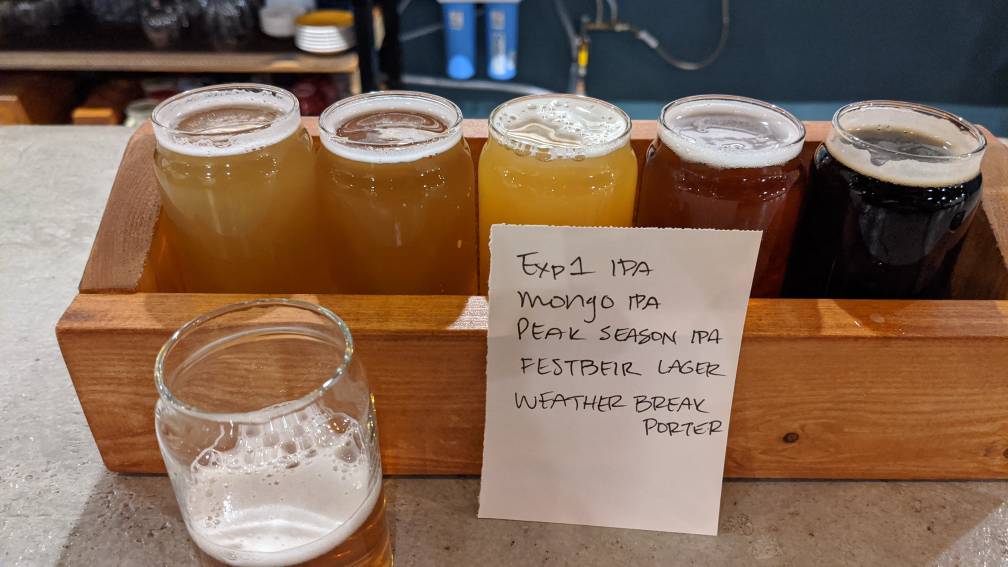 Exp1 IPA
mongo IPA
PEAK SEASON IPA
FESTBEIR LAGER
WEATHER BREAK
PORTER